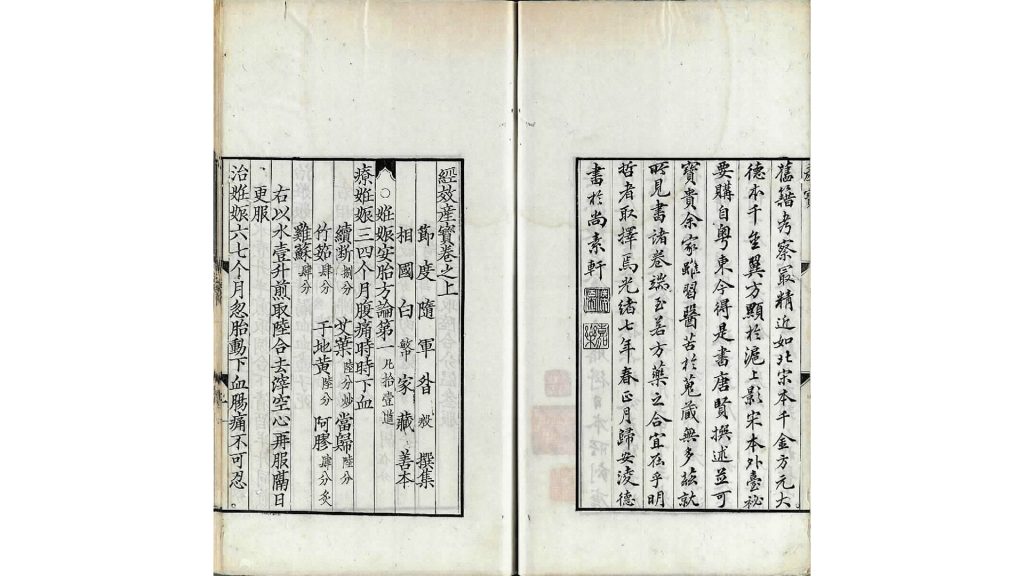 產寶
舊籍考察最精近如北宋本千金方元大
德本千金翼方顯於滬上影宋本外臺祕
要購自粵東今得是書唐賢撰述並可
寶貴余家雖習醫苦於蒐藏無多茲就
所見書諸卷端至若方藥之合宜在乎明
哲者取擇焉光緒七年春正月歸安淩德
書於尚素軒
經效產寶卷之上
節度隨軍昝殷撰集
相國白敏中家藏善本
○姙娠安胎方論第一凡拾壹道
療姙娠三四个月腹痛時時下血
續斷捌分 艾葉陸分炒 當歸陸分
竹筎肆分 干地黃陸分 阿膠肆分炙
雞蘇肆分
右以水壹升煎取陸合去滓空心再服隔日
更服
治姙娠六七个月忽胎動下血腸痛不可忍